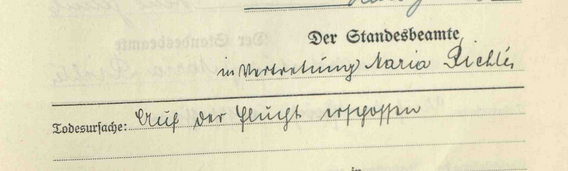 Der Standesbeamte
in Vertretung Maria Pichler
Todesursache: Auf der Flucht erschossen